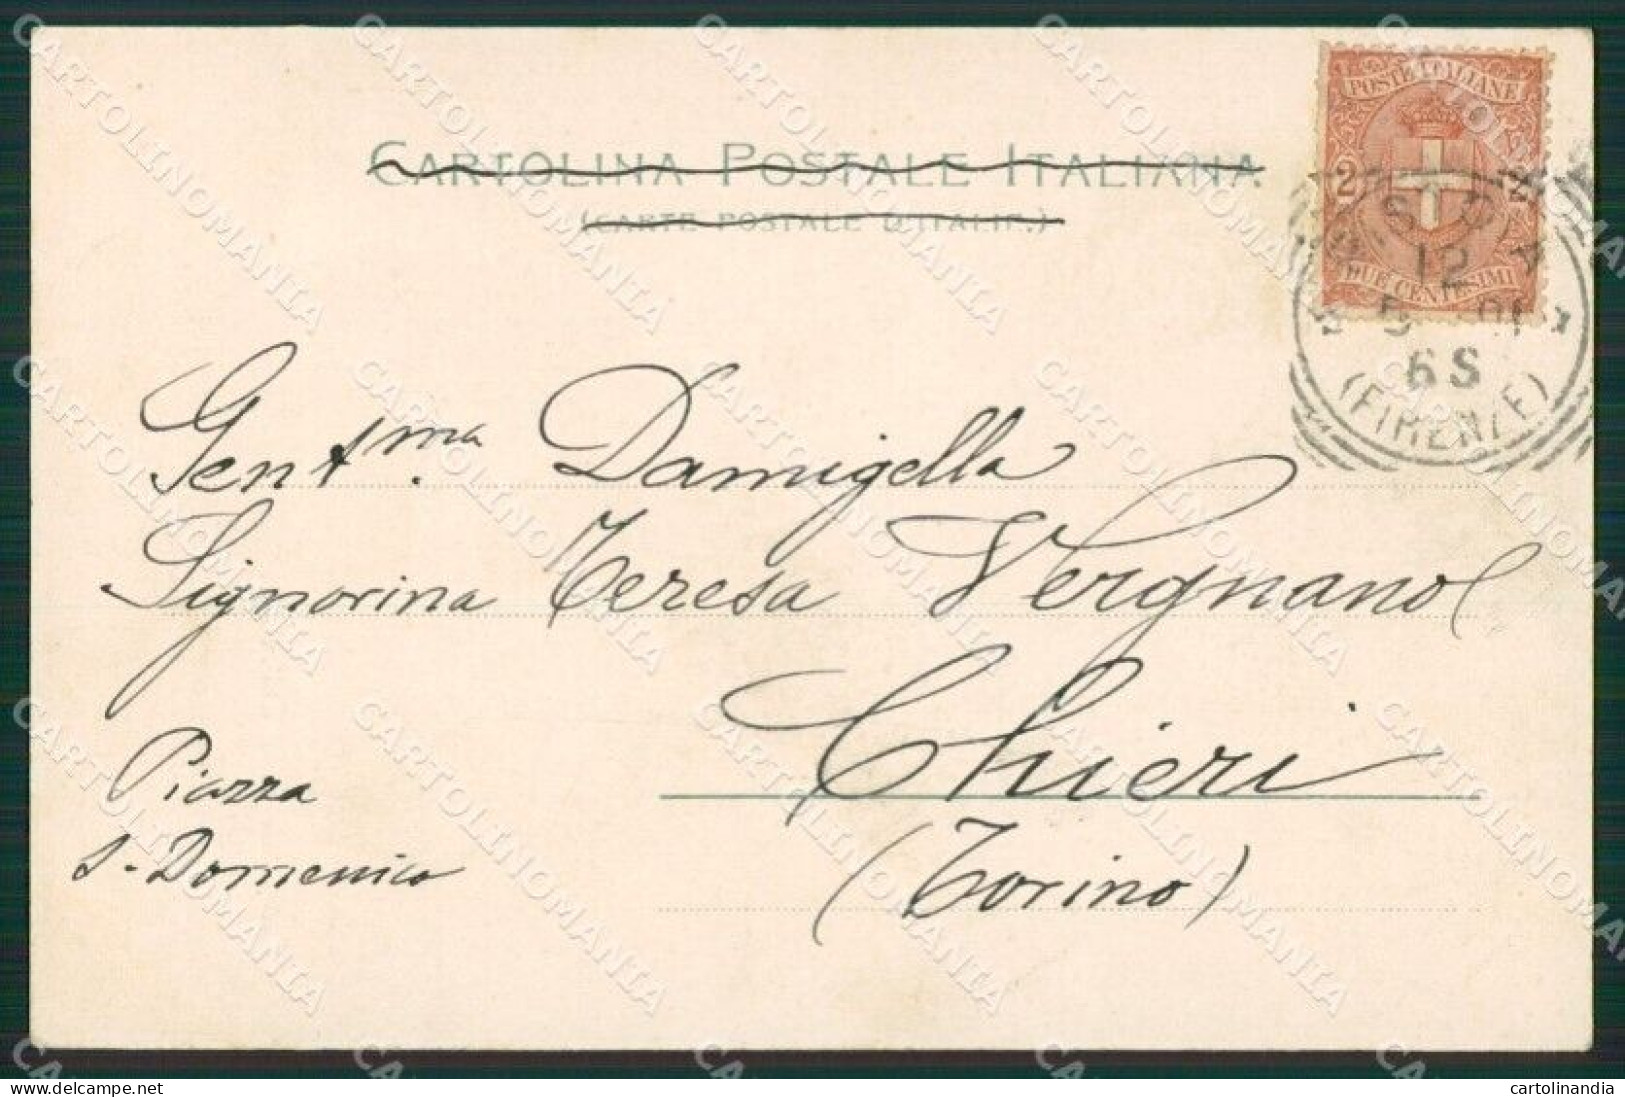 CARTOLINA POSTALE ITALIANA
(CARTE POSTALE D'ITALIE.)
POSTE ITALIANE
2 2
DUE CENTESIMI
PISTOIA
12
5 01
6 S
(FIRENZE)
Gent.ma Damigella
Signorina Teresa Vergnano
Chieri
(Torino)
Piazza
S. Domenico
CARTOLINOMANIA
cartolinandia